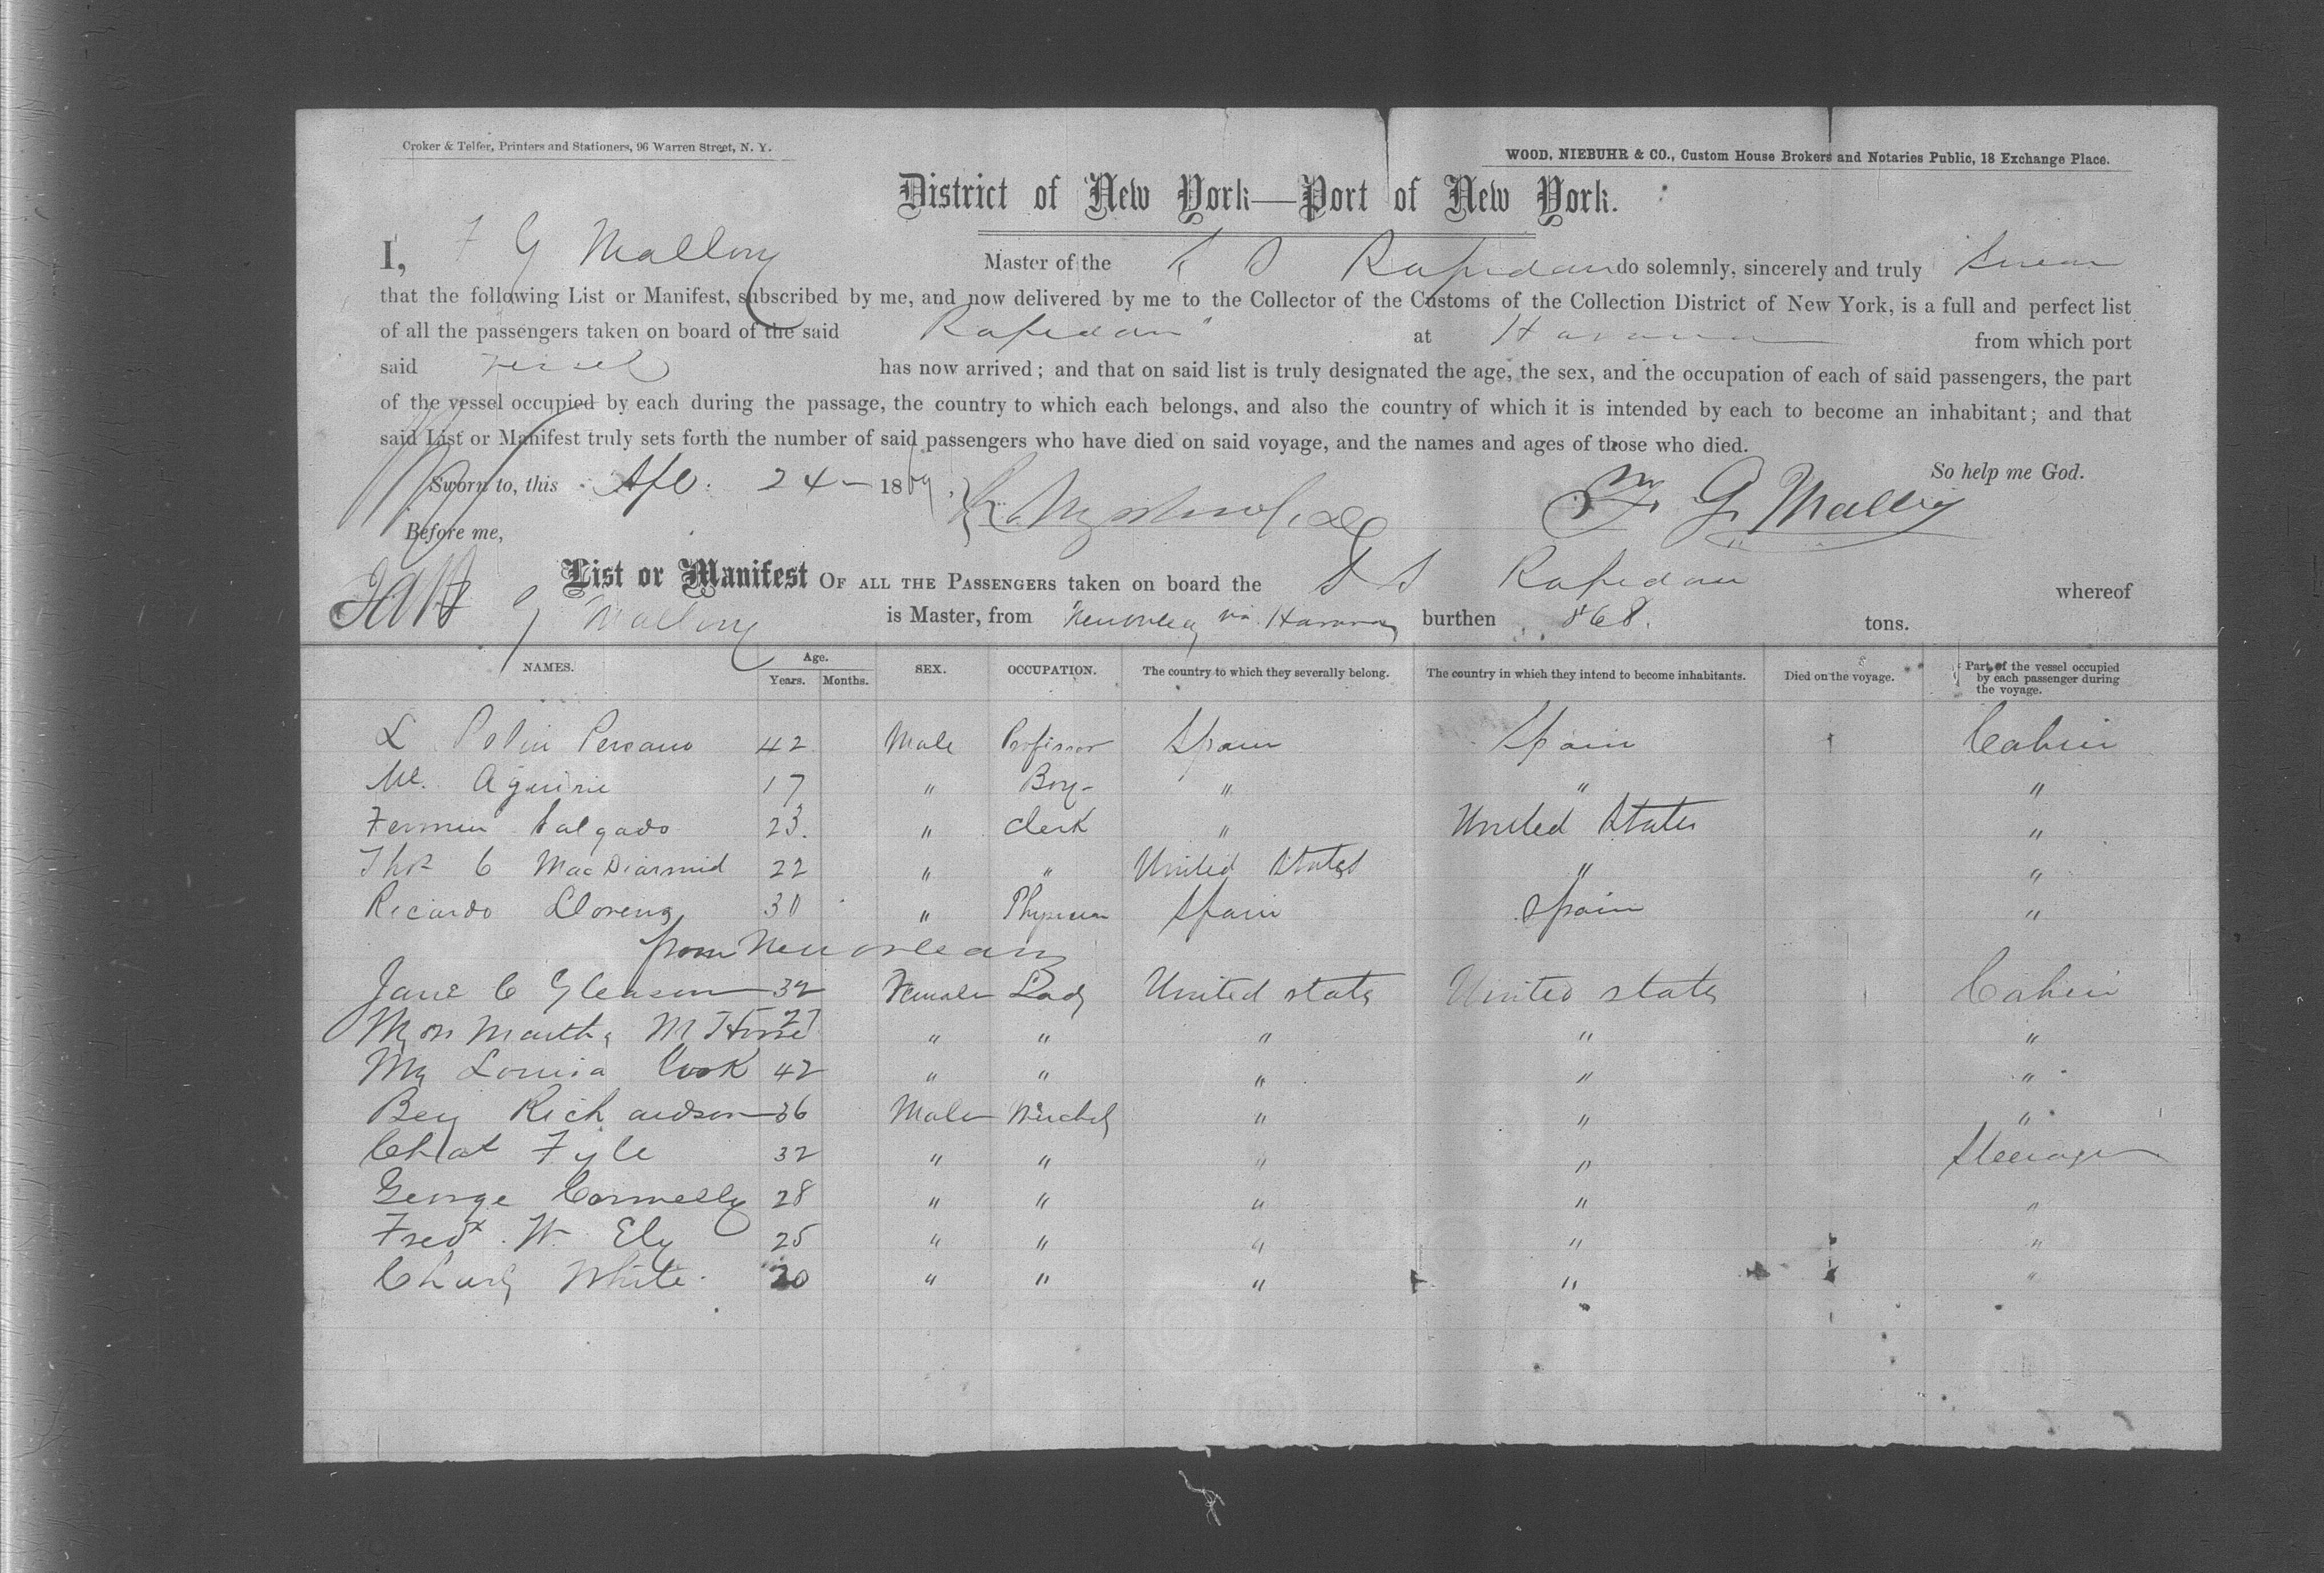 Croker & Telfer, Printers and Stationers, 96 Warren Street, N. Y.
WOOD, NIEBUHR & CO., Custom House Brokers and Notaries Public, 18 Exchange Place.
District of New York—Port of New York.
I, F G Mallory Master of the S S Rapidan do solemnly, sincerely and truly Swear
that the following List or Manifest, subscribed by me, and now delivered by me to the Collector of the Customs of the Collection District of New York, is a full and perfect list
of all the passengers taken on board of the said Rapidan at Havana from which port
said vessel has now arrived; and that on said list is truly designated the age, the sex, and the occupation of each of said passengers, the part
of the vessel occupied by each during the passage, the country to which each belongs, and also the country of which it is intended by each to become an inhabitant; and that
said List or Manifest truly sets forth the number of said passengers who have died on said voyage, and the names and ages of those who died.
So help me God.
Sworn to, this Apl. 24 - 1869 F. G. Mallory
Before me,
List or Manifest OF ALL THE PASSENGERS taken on board the S S Rapidan whereof
G Mallory is Master, from New Orleans via Havana burthen 868. tons.
NAMES. Age. Years. Months. SEX. OCCUPATION. The country to which they severally belong. The country in which they intend to become inhabitants. Died on the voyage. Part of the vessel occupied by each passenger during the voyage.
L Persano 42 Male Professor Spain Spain Cabin
M. Aguirre 17 " Boy " " "
Fermin Salgado 23. " Clerk " United States "
Thos C MacDiarmid 22 " " United States " "
Ricardo Llorens 30 " Physician Spain Spain "
from New Orleans
Jane C Gleason 32 Female Lady United States United States Cabin
Martha M 27 " " " " "
Mrs Louisa Cook 42 " " " " "
Benj Richardson 36 Male " " "
Chas Fyle 32 " " " " Steerage
George Connelly 28 " " " " "
Fredk. W Ely 25 " " " " "
Charles White. 20 " " " " "